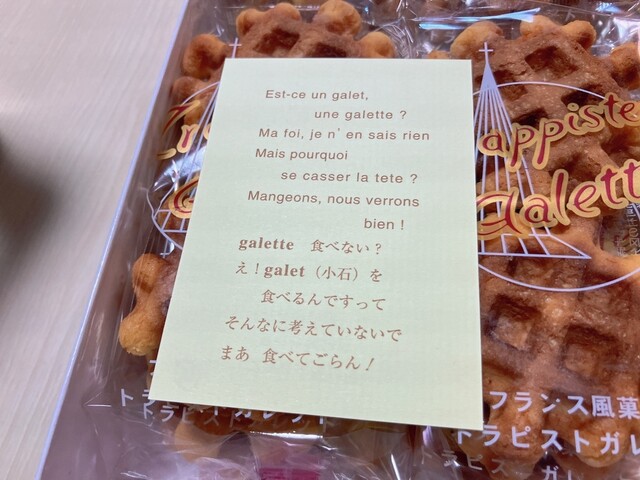 Est-ce un galet,
une galette ?
Ma foi, je n' en sais rien
Mais pourquoi
se casser la tete ?
Mangeons, nous verrons
bien !
galette 食べない？
え！galet（小石）を
食べるんですって
そんなに考えていないで
まあ 食べてごらん！
appiste
Galett
フランス風菓
トラピストガレ
トラピストガレット